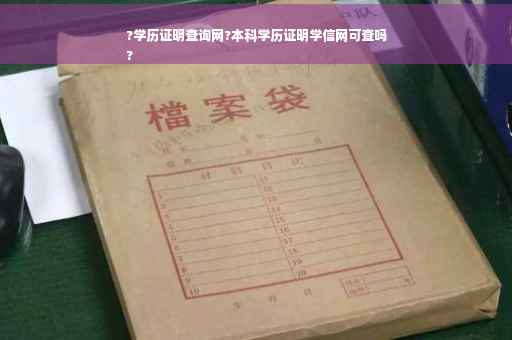 ?学历证明查询网?本科学历证明学信网可查吗
?
檔案袋
材料目次
1 11
2 12
3 13
4 14
5 15
6 16
7 17
8 18
9 19
10 20
年 月 日